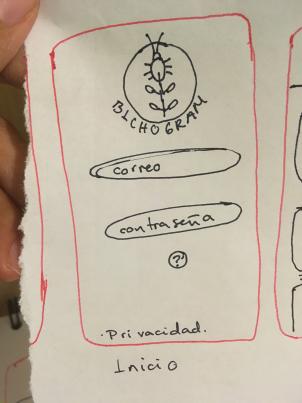 BICHOGRAM
correo
contraseña
?
.Privacidad.
Inicio